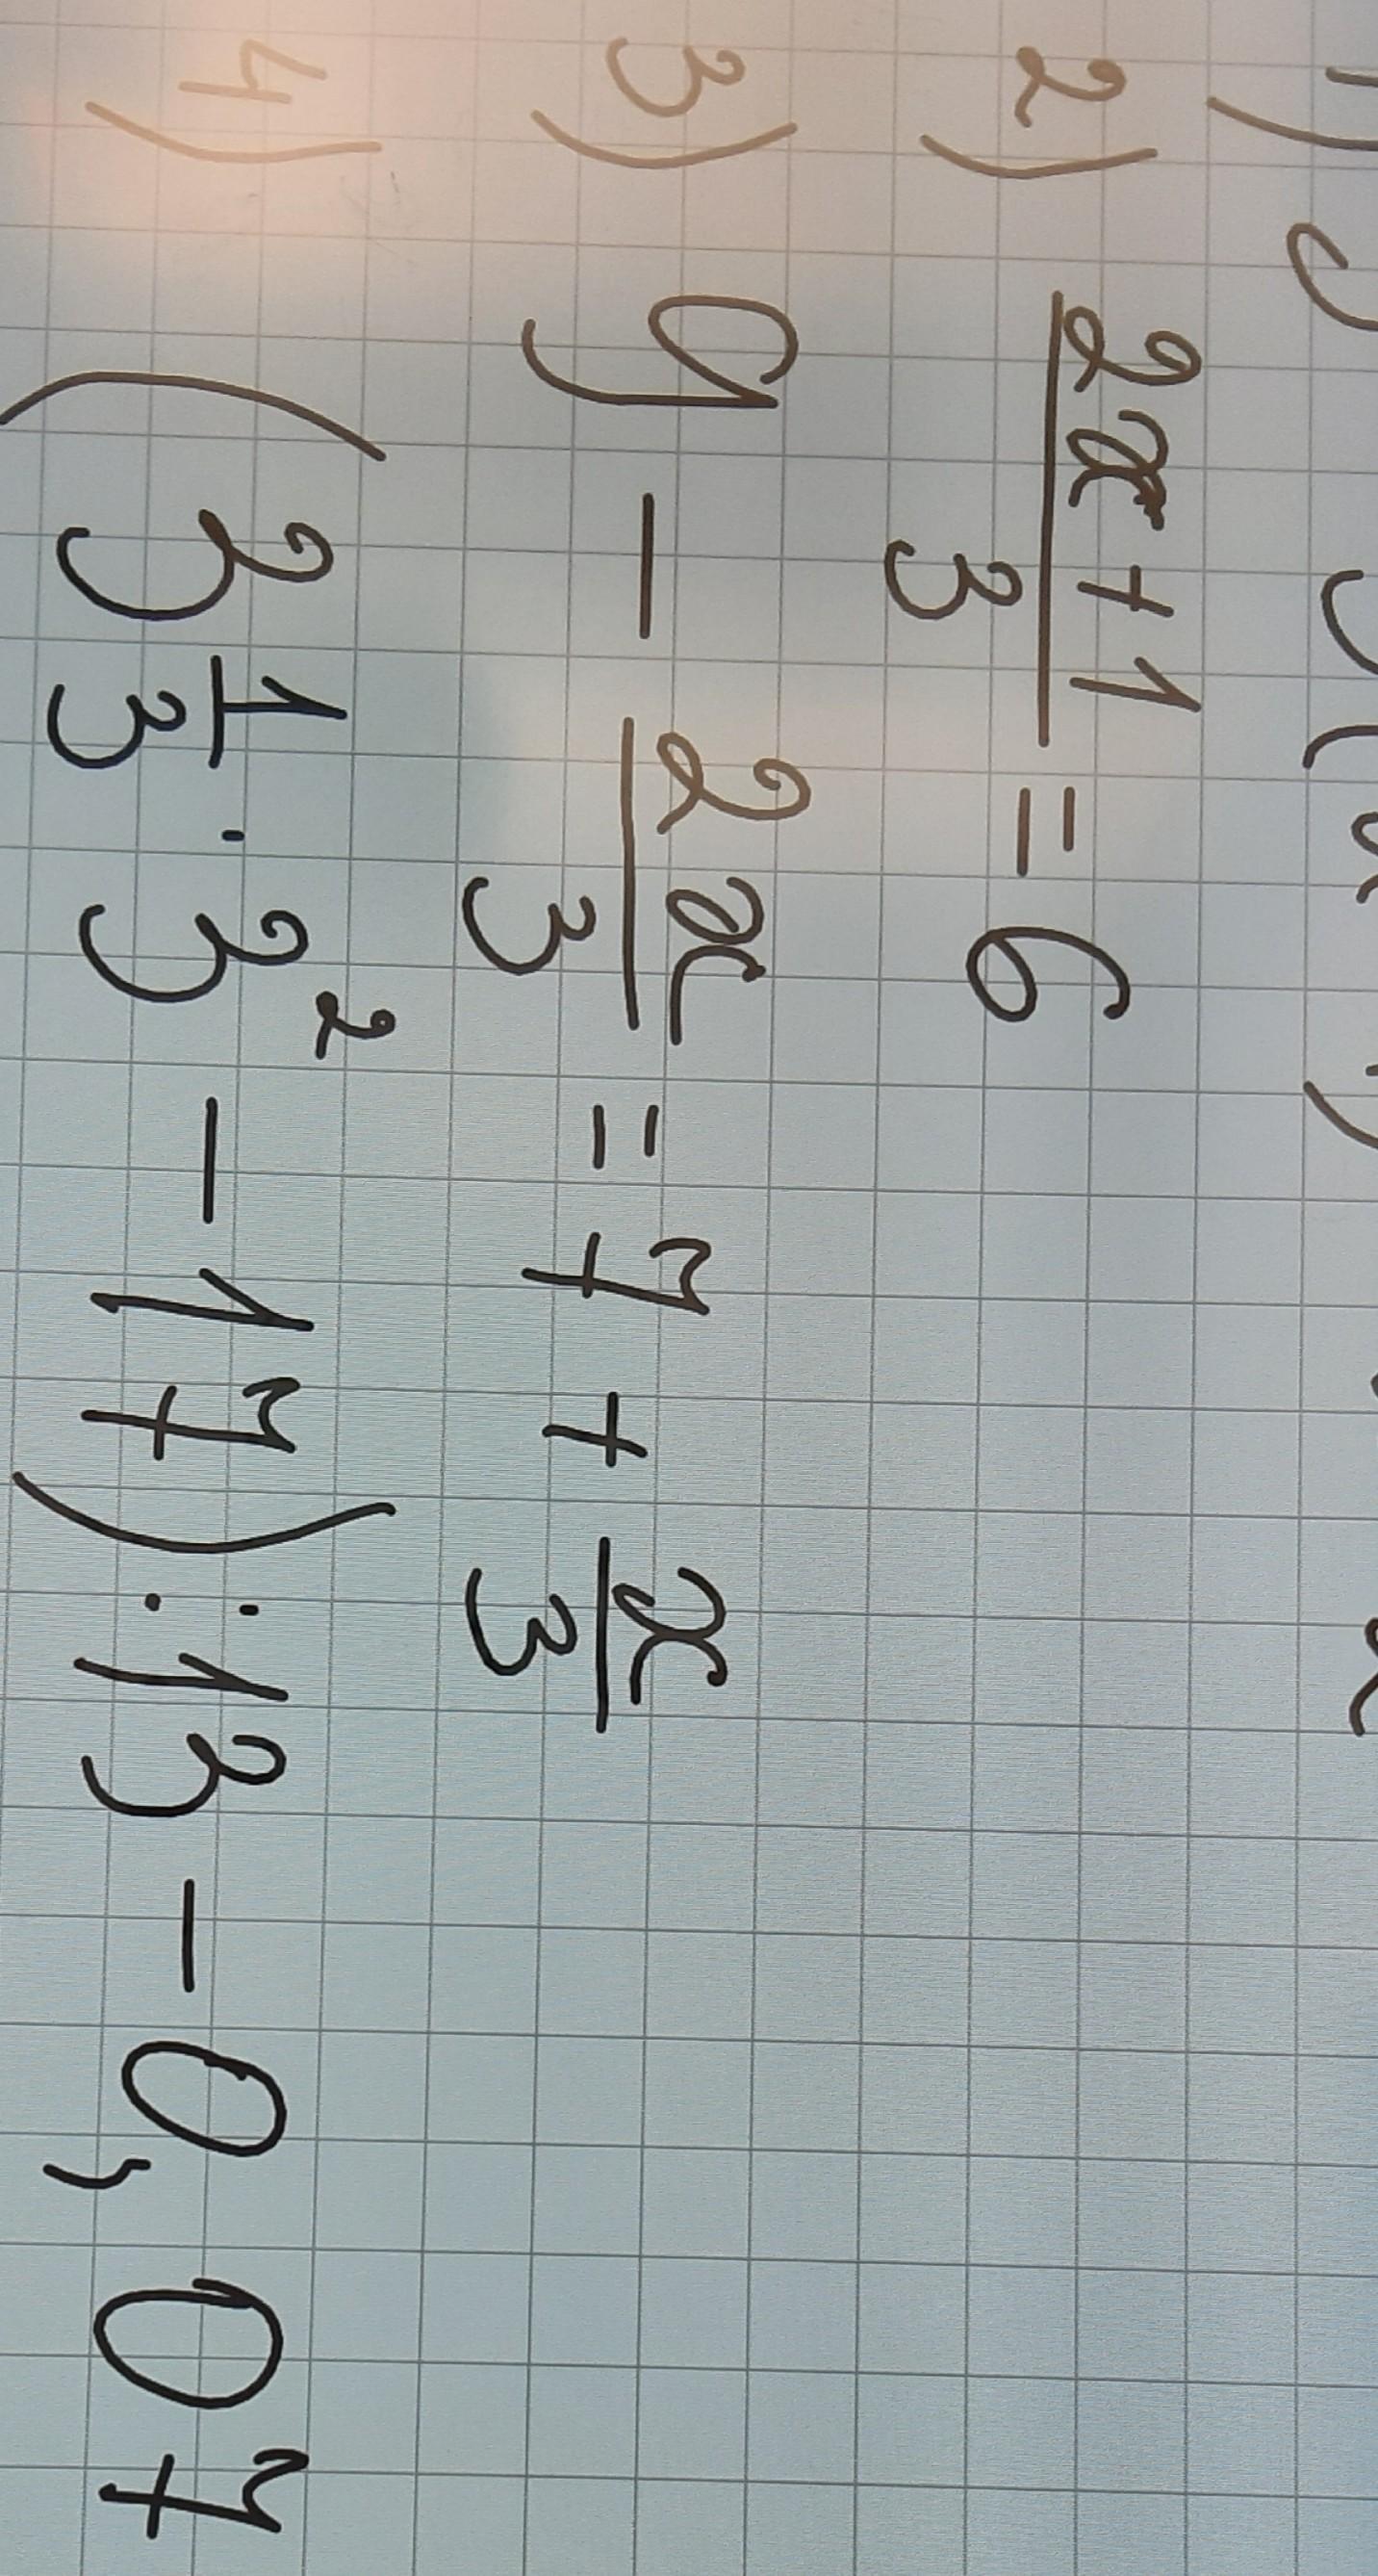 1)
2) (2x+1)/3 = 6
3) 9 - 2x/3 = 7 + x/3
4) (3 1/3 · 3² - 17) : 13 - 0,07